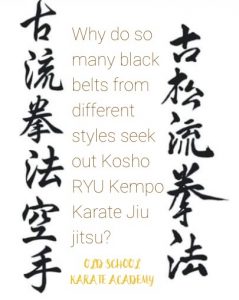 古流拳法空手
Why do so
many black
belts from
different
styles seek
out Kosho
RYU Kempo
Karate Jiu
jitsu?
OLD SCHOOL
KARATE ACADEMY
古松流拳法